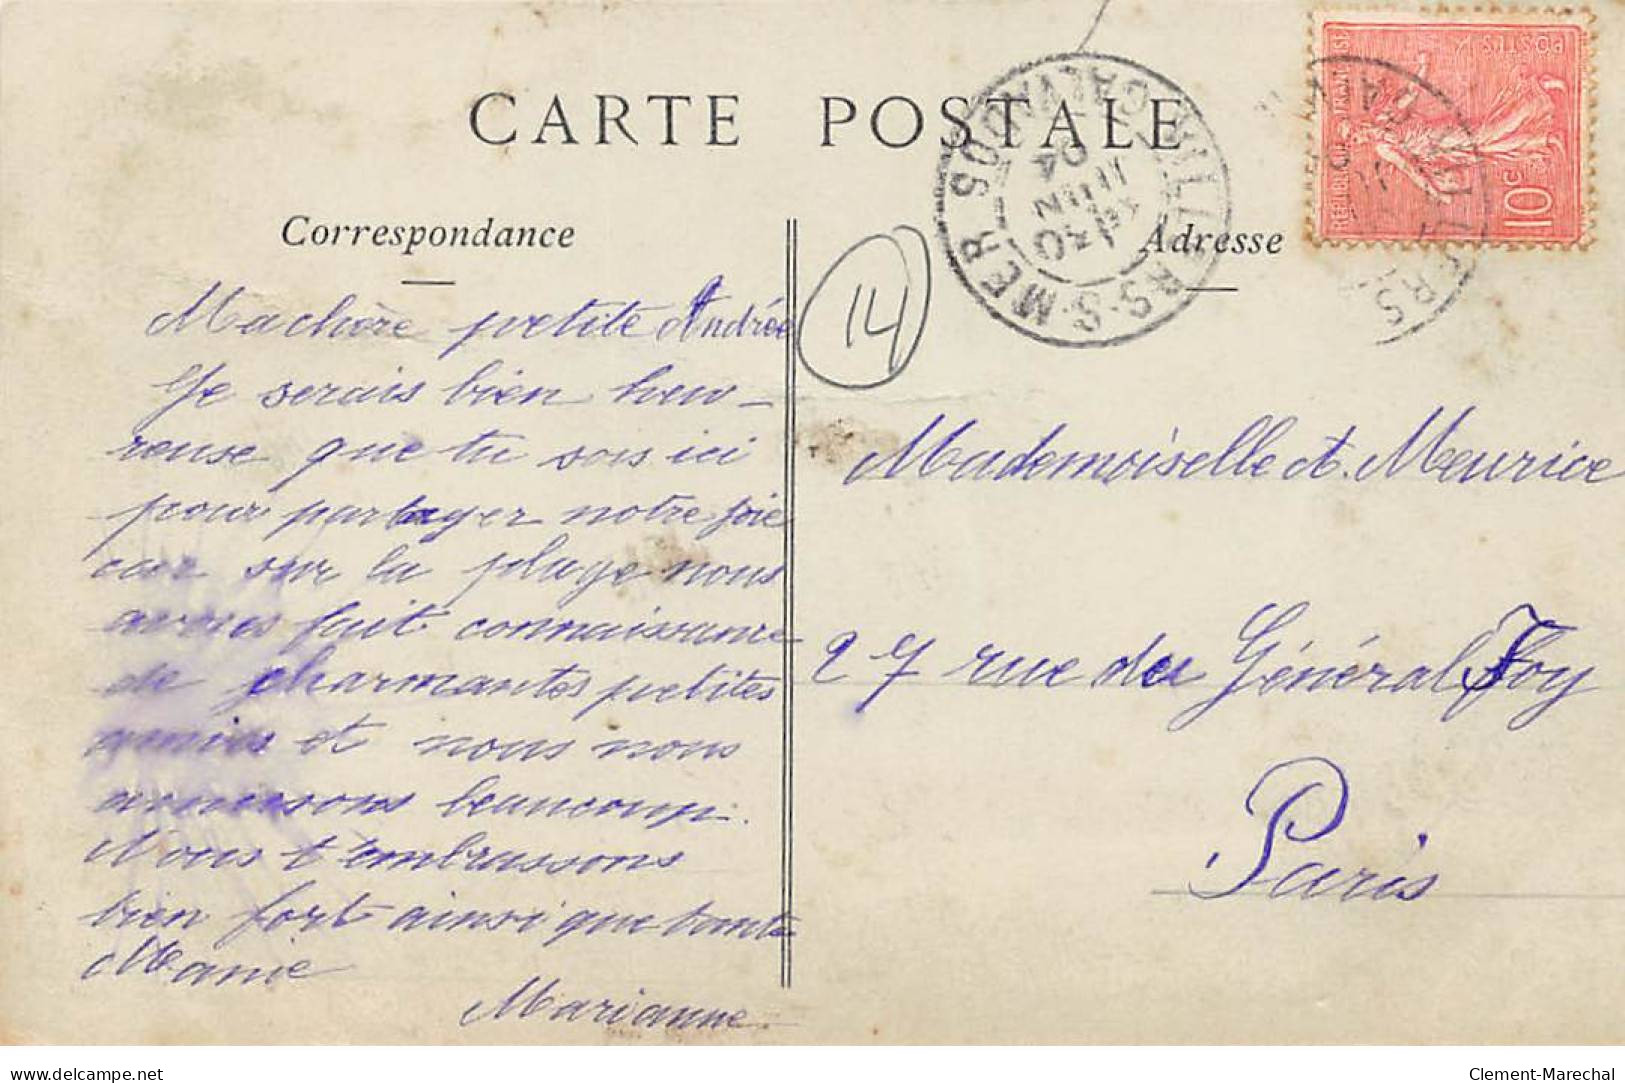 CARTE POSTALE
Correspondance
Ma chère petite Andrée
Je serais bien heu-
reuse que tu sois ici
pour partager notre joie
car sur la plage nous
avons fait connaissance
de charmantes petites
amies et nous nous
amusons beaucoup.
Nous t'embrassons
bien fort ainsi que tante
Manie
Marianne
14
VILLERS-S-MER CALVADOS
30
JUIN
04
Adresse
POSTES
REPUBLIQUE FRANÇAISE
10c
Mademoiselle A. Meurice
27 rue du Général Foy
Paris
www.delcampe.net
Clement-Marechal